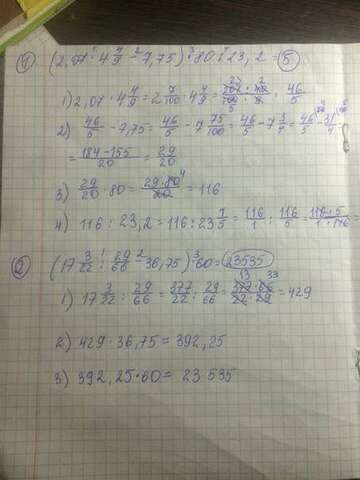 ① (2,07 · 4 4/9 - 7,75) · 80 : 23,2 = 5
1) 2,07 · 4 4/9 = 2 7/100 · 4 4/9 = = 46/5
2) 46/5 - 7,75 = 46/5 - 7 75/100 = 46/5 - 7 3/4 = 46/5 - 31/4
= (184-155)/20 = 29/20
3) 29/20 · 80 = (29·80)/20 = 116
4) 116 : 23,2 = 116 : 23 1/5 = 116/1 : 116/5 = (116·5)/(1·116) =
② (17 3/22 : 29/66 - 36,75) · 60 = 23535
1) 17 3/22 : 29/66 = 377/22 : 29/66 = (377·66)/(22·29) = 429
2) 429 - 36,75 = 392,25
3) 392,25 · 60 = 23 535